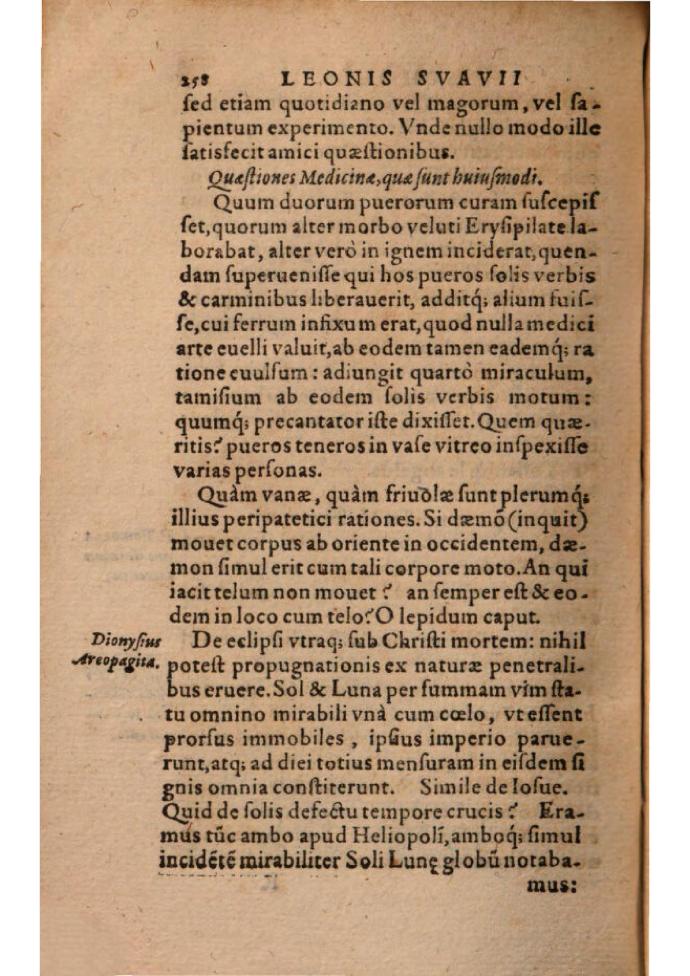 258 LEONIS SVAVII
sed etiam quotidiano vel magorum, vel sa-
pientum experimento. Vnde nullo modo ille
satisfecit amici quæstionibus.
Quæstiones Medicinæ, quæ sunt huiusmodi.
Quum duorum puerorum curam suscepis
set, quorum alter morbo veluti Erysipilate la-
borabat, alter verò in ignem inciderat, quen-
dam superuenisse qui hos pueros solis verbis
& carminibus liberauerit, additq́; alium fuis-
se, cui ferrum infixum erat, quod nulla medici
arte euelli valuit, ab eodem tamen eademq́; ra
tione euulsum: adiungit quartò miraculum,
tamisium ab eodem solis verbis motum:
quumq́; precantator iste dixisset. Quem quæ-
ritis? pueros teneros in vase vitreo inspexisse
varias personas.
Quàm vanæ, quàm friuolæ sunt plerumq́;
illius peripatetici rationes. Si dæmō (inquit)
mouet corpus ab oriente in occidentem, dæ-
mon simul erit cum tali corpore moto. An qui
iacit telum non mouet? an semper est & eo-
dem in loco cum telo? O lepidum caput.
Dionysius
Areopagita.
De eclipsi vtraq; sub Christi mortem: nihil
potest propugnationis ex naturæ penetrali-
bus eruere. Sol & Luna per summam vim sta-
tu omnino mirabili vnà cum cœlo, vt essent
prorsus immobiles, ipsius imperio parue-
runt, atq; ad diei totius mensuram in eisdem si
gnis omnia constiterunt. Simile de Iosue.
Quid de solis defectu tempore crucis? Era-
mus tūc ambo apud Heliopolí, amboq́; simul
incidētē mirabiliter Soli Lunę globū notaba-
mus: